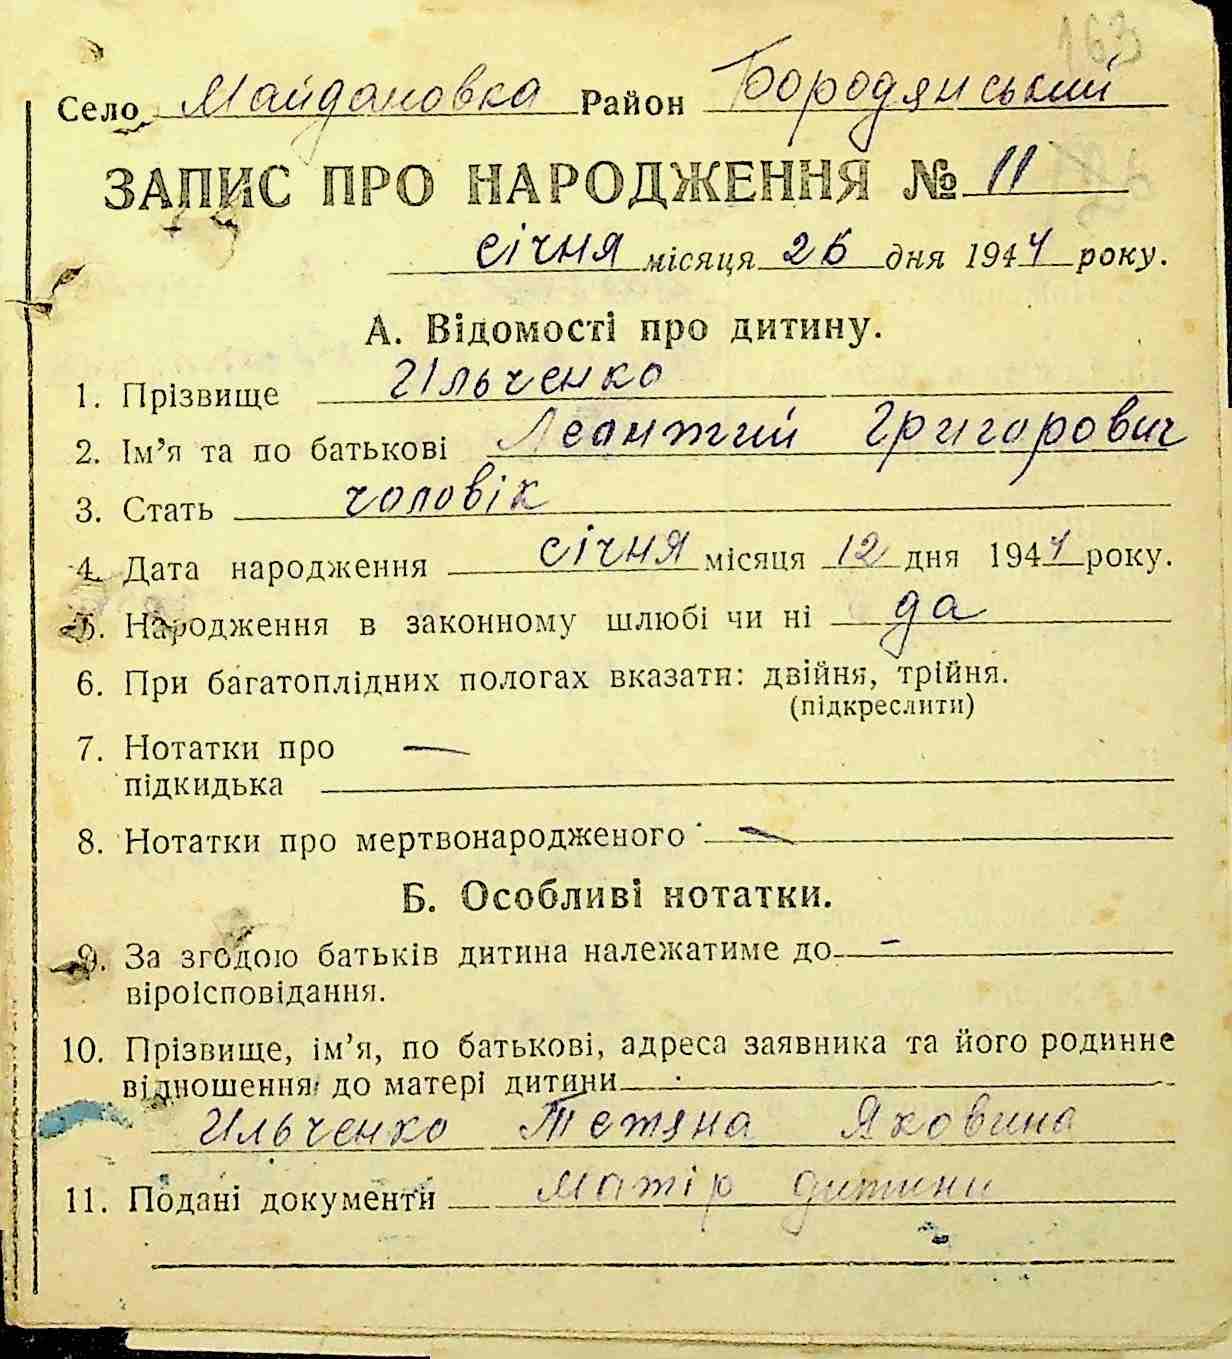 163
Село Майдановка Район Бородянський
ЗАПИС ПРО НАРОДЖЕННЯ № 11
січня місяця 26 дня 1944 року.
А. Відомості про дитину.
1. Прізвище Ильченко
2. Ім’я та по батькові Леонтий Григорович
3. Стать чоловік
4. Дата народження січня місяця 12 дня 1944 року.
5. Народження в законному шлюбі чи ні да
6. При багатоплідних пологах вказати: двійня, трійня.
(підкреслити)
7. Нотатки про —
підкидька
8. Нотатки про мертвонародженого —
Б. Особливі нотатки.
9. За згодою батьків дитина належатиме до —
віроісповідання.
10. Прізвище, ім’я, по батькові, адреса заявника та його родинне
відношення до матері дитини
Ильченко Тетяна Яковина
11. Подані документи матір дитини